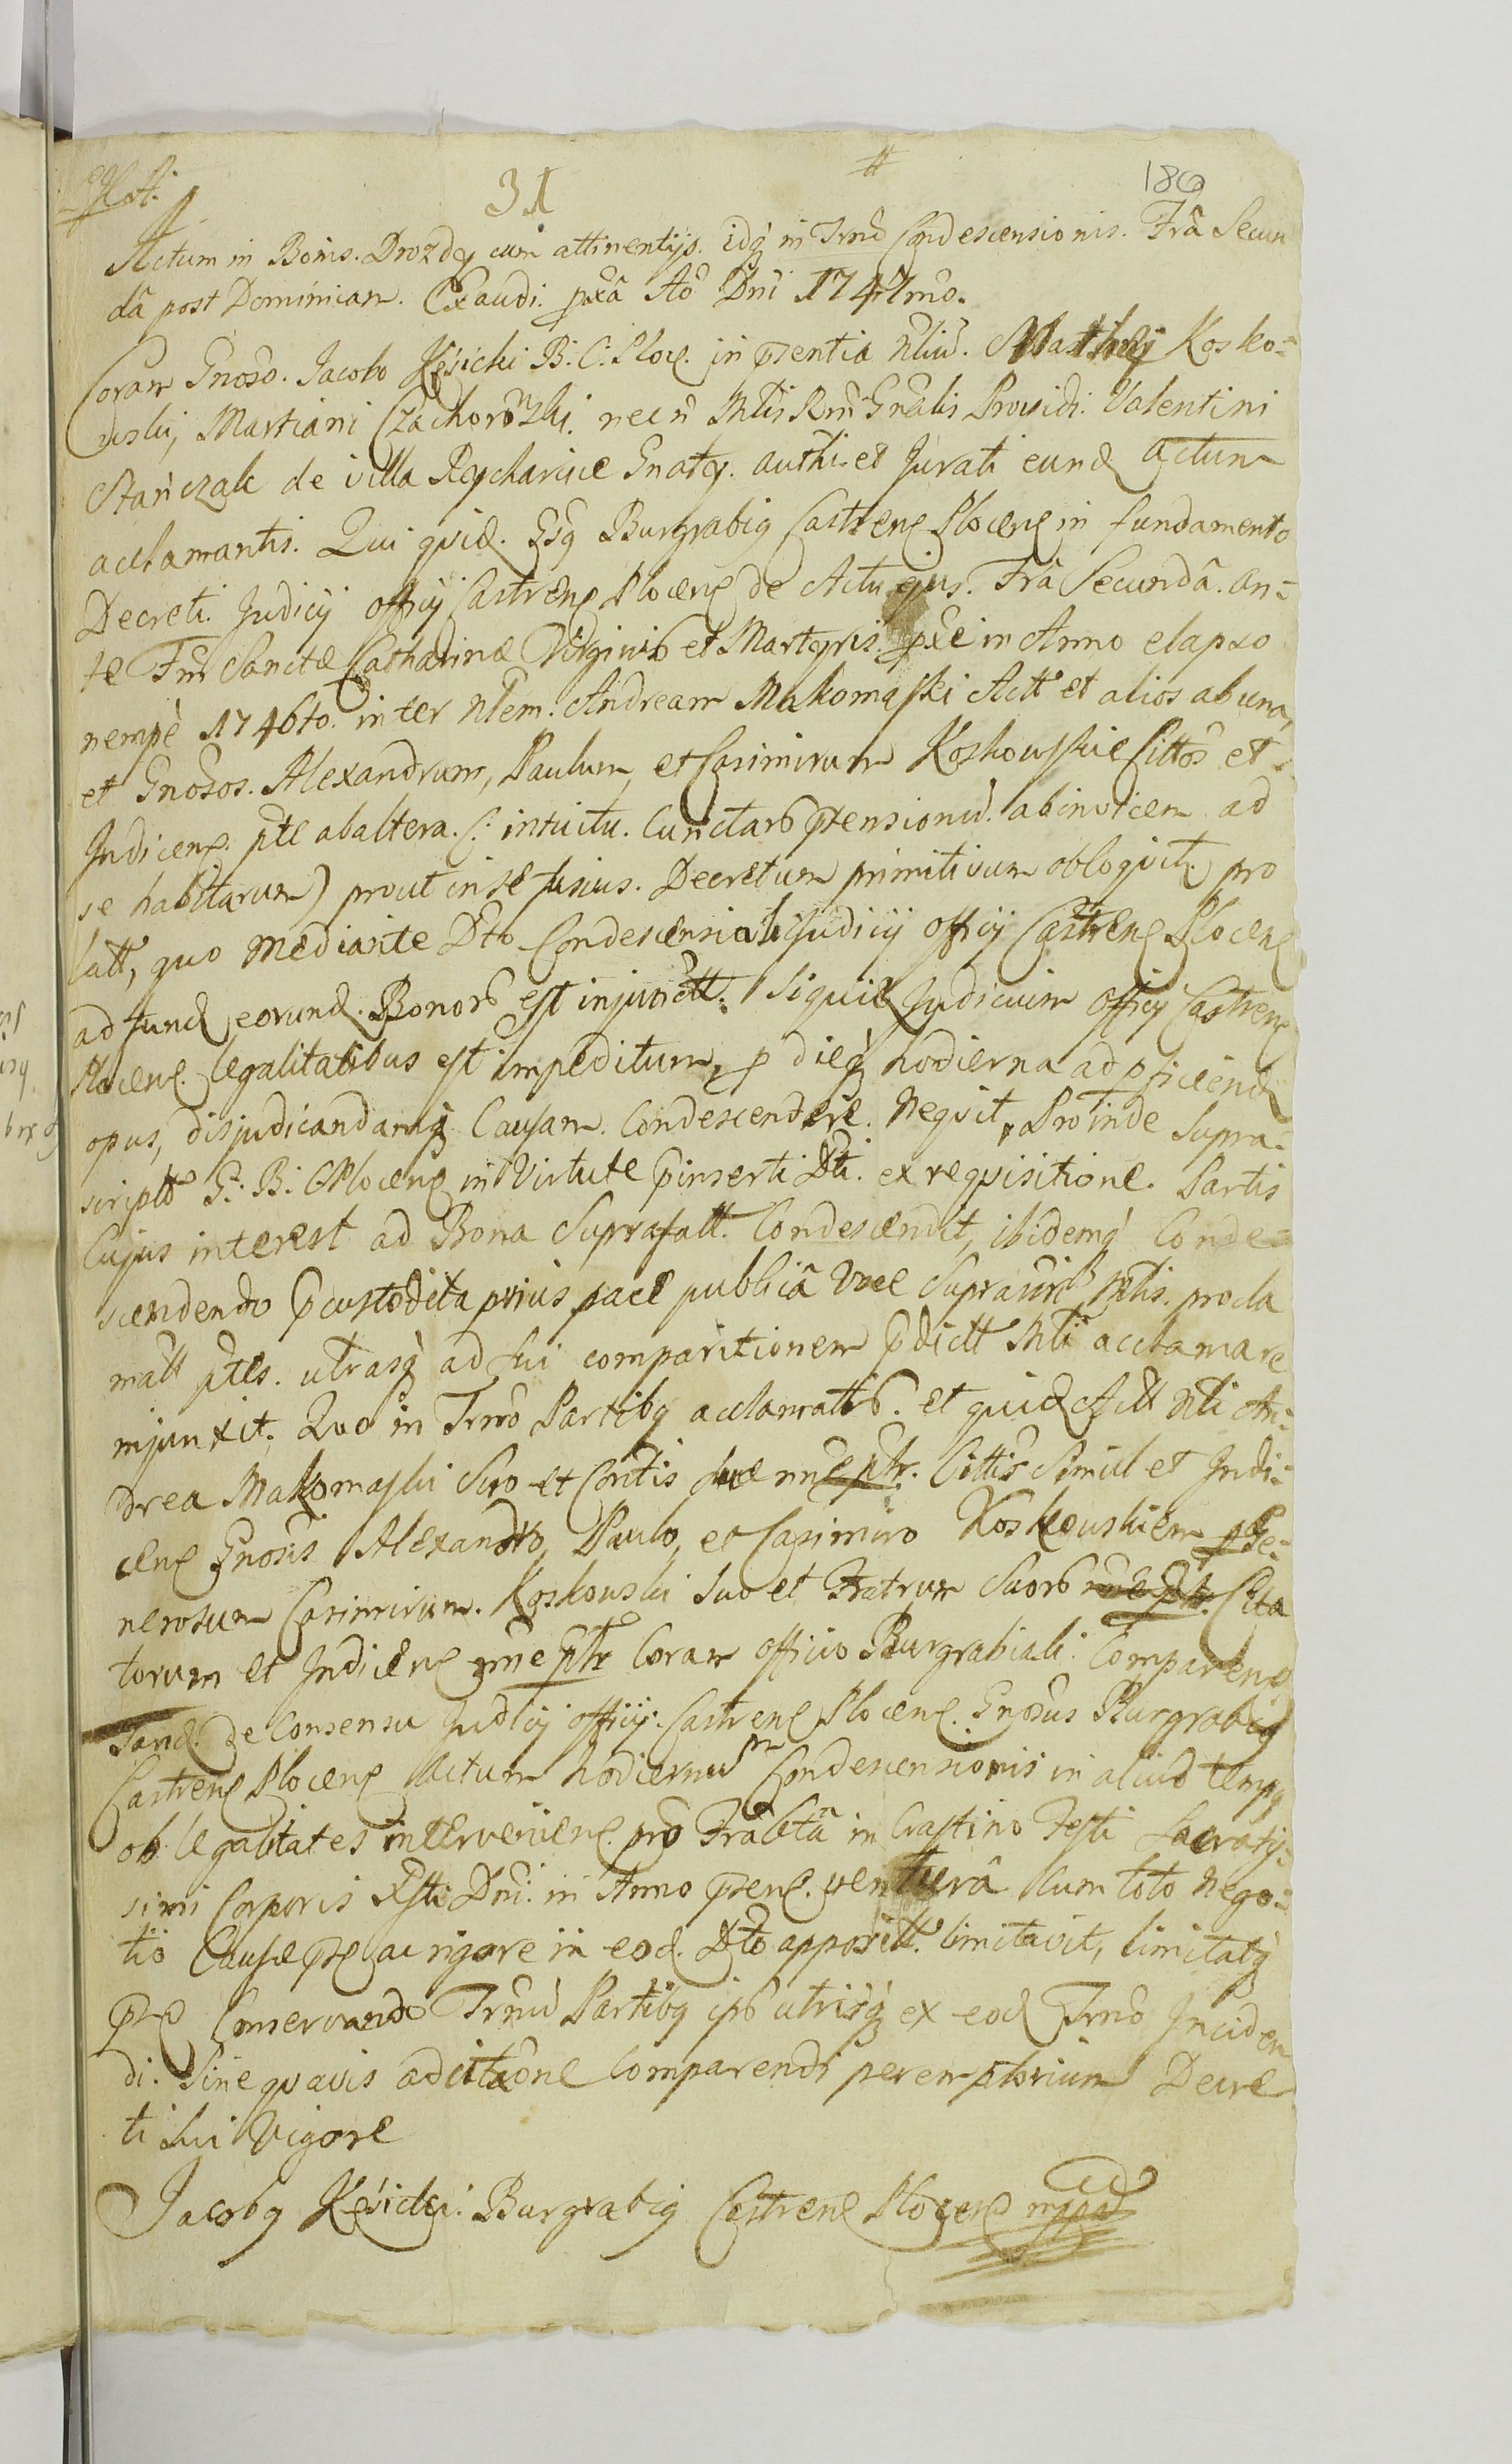 31 # 180
Actum in Bonis. Drozdy cum attinentijs. idq́ in Trnô Condescensionis. Frâ Secun
dâ post Dominicam. Exaudi. pxâ Aô Dnî 1747mô.
Coram Gnôso. Jacobo Kęsicki B: C: Ploc. in pzentia Nliû. Mathej Kosko=
wski, Martiani Czachorowski. necn̂ Mlis Rnî Gnâlis Providi. Valentini
Stańczak de villa Rycharcice Gnatę. authi. et Jurati eund Actum
acclamantis. Qui quid. Gsq Burgrabig Castren Plocen in fundamento
Decreti. Judicij officij Castren Plocen de Actu ejus. Frâ Secundâ. an=
te Fm Sanctæ Catharinæ Virginis et Martyris. pxe in Anno elapso
nempè 1746to. inter Nlem. Andream Makomaski Actt et alios ab una,
et Gnôsos. Alexandrum, Paulum, et Casimirum Koskouskie Cittôs et
Indicen. pte ab altera. C: intuitu. Cunctarb ptensionû. abinvicem ad
se habitarum) prout in se fusius. Decretum primitivum obloqvit. pro
latt, quo mediante Dto Condescensiali Judicij officij Castren Plocen
ad fund eorund. Bonorb est injunctt. Siquid Judicium officij Castren
Plocen. legalitatibus est impeditum, p dieq́ hodierna ad pficiend
opus, disjudicandamq́ Causam. Condescendere. Neqvit, Proinde Supra=
scriptt G: B: C Plocen in Virtute pinserti Dti. ex reqvisitione. Partis
Cujus interest ad Bona Suprafatt. Condescendit, ibidemq́ Conde=
scendendo pcustodita prius pace publicâ voce Suprascrib Mlis. procla
matt ptes. utrasq́ ad sui comparitionem pdictt Mli acclamare
injunxit. Quo in Trnô Partibq acclamatib. et quid Actt Nli An=
drea Makomaski Suo et Contis suæ nne ptr. Cittis Simul et Indi=
cen Gnôsis Alexandro, Paulo, et Casimiro Koskouskiem p Ge=
nerosum Casimirum. Koskouski Suo et Fratrum Suorb Cita
torum et Indicen nne ptr Coram officio Burgrabiali. Comparen
Tand. de Consensu Judicij officij. Castren Plocen. Gnôsus Burgrabiq
Castren Plocen Actum hodiernum Condescensionis in aliud tempq
ob legalitates intervenien. prô Frâ 6tâ in Crastino Festi Sacratis=
simi Corporis Xsti Dnî. in Anno pzen. venturâ Cum toto Nego=
tio Causæ pzs ac rigore in eod. Dto apposittô. limitavit, limitatq́
pzs Conservando Trnû Partibq ipb utrisq́ ex eod Trnô Inciden
di. Sine qvavis adcitaône Comparendi peremptorium Decre
ti sui vigore
Jacobq Kęsicki. Burgrabiq Castren Plocen mppa